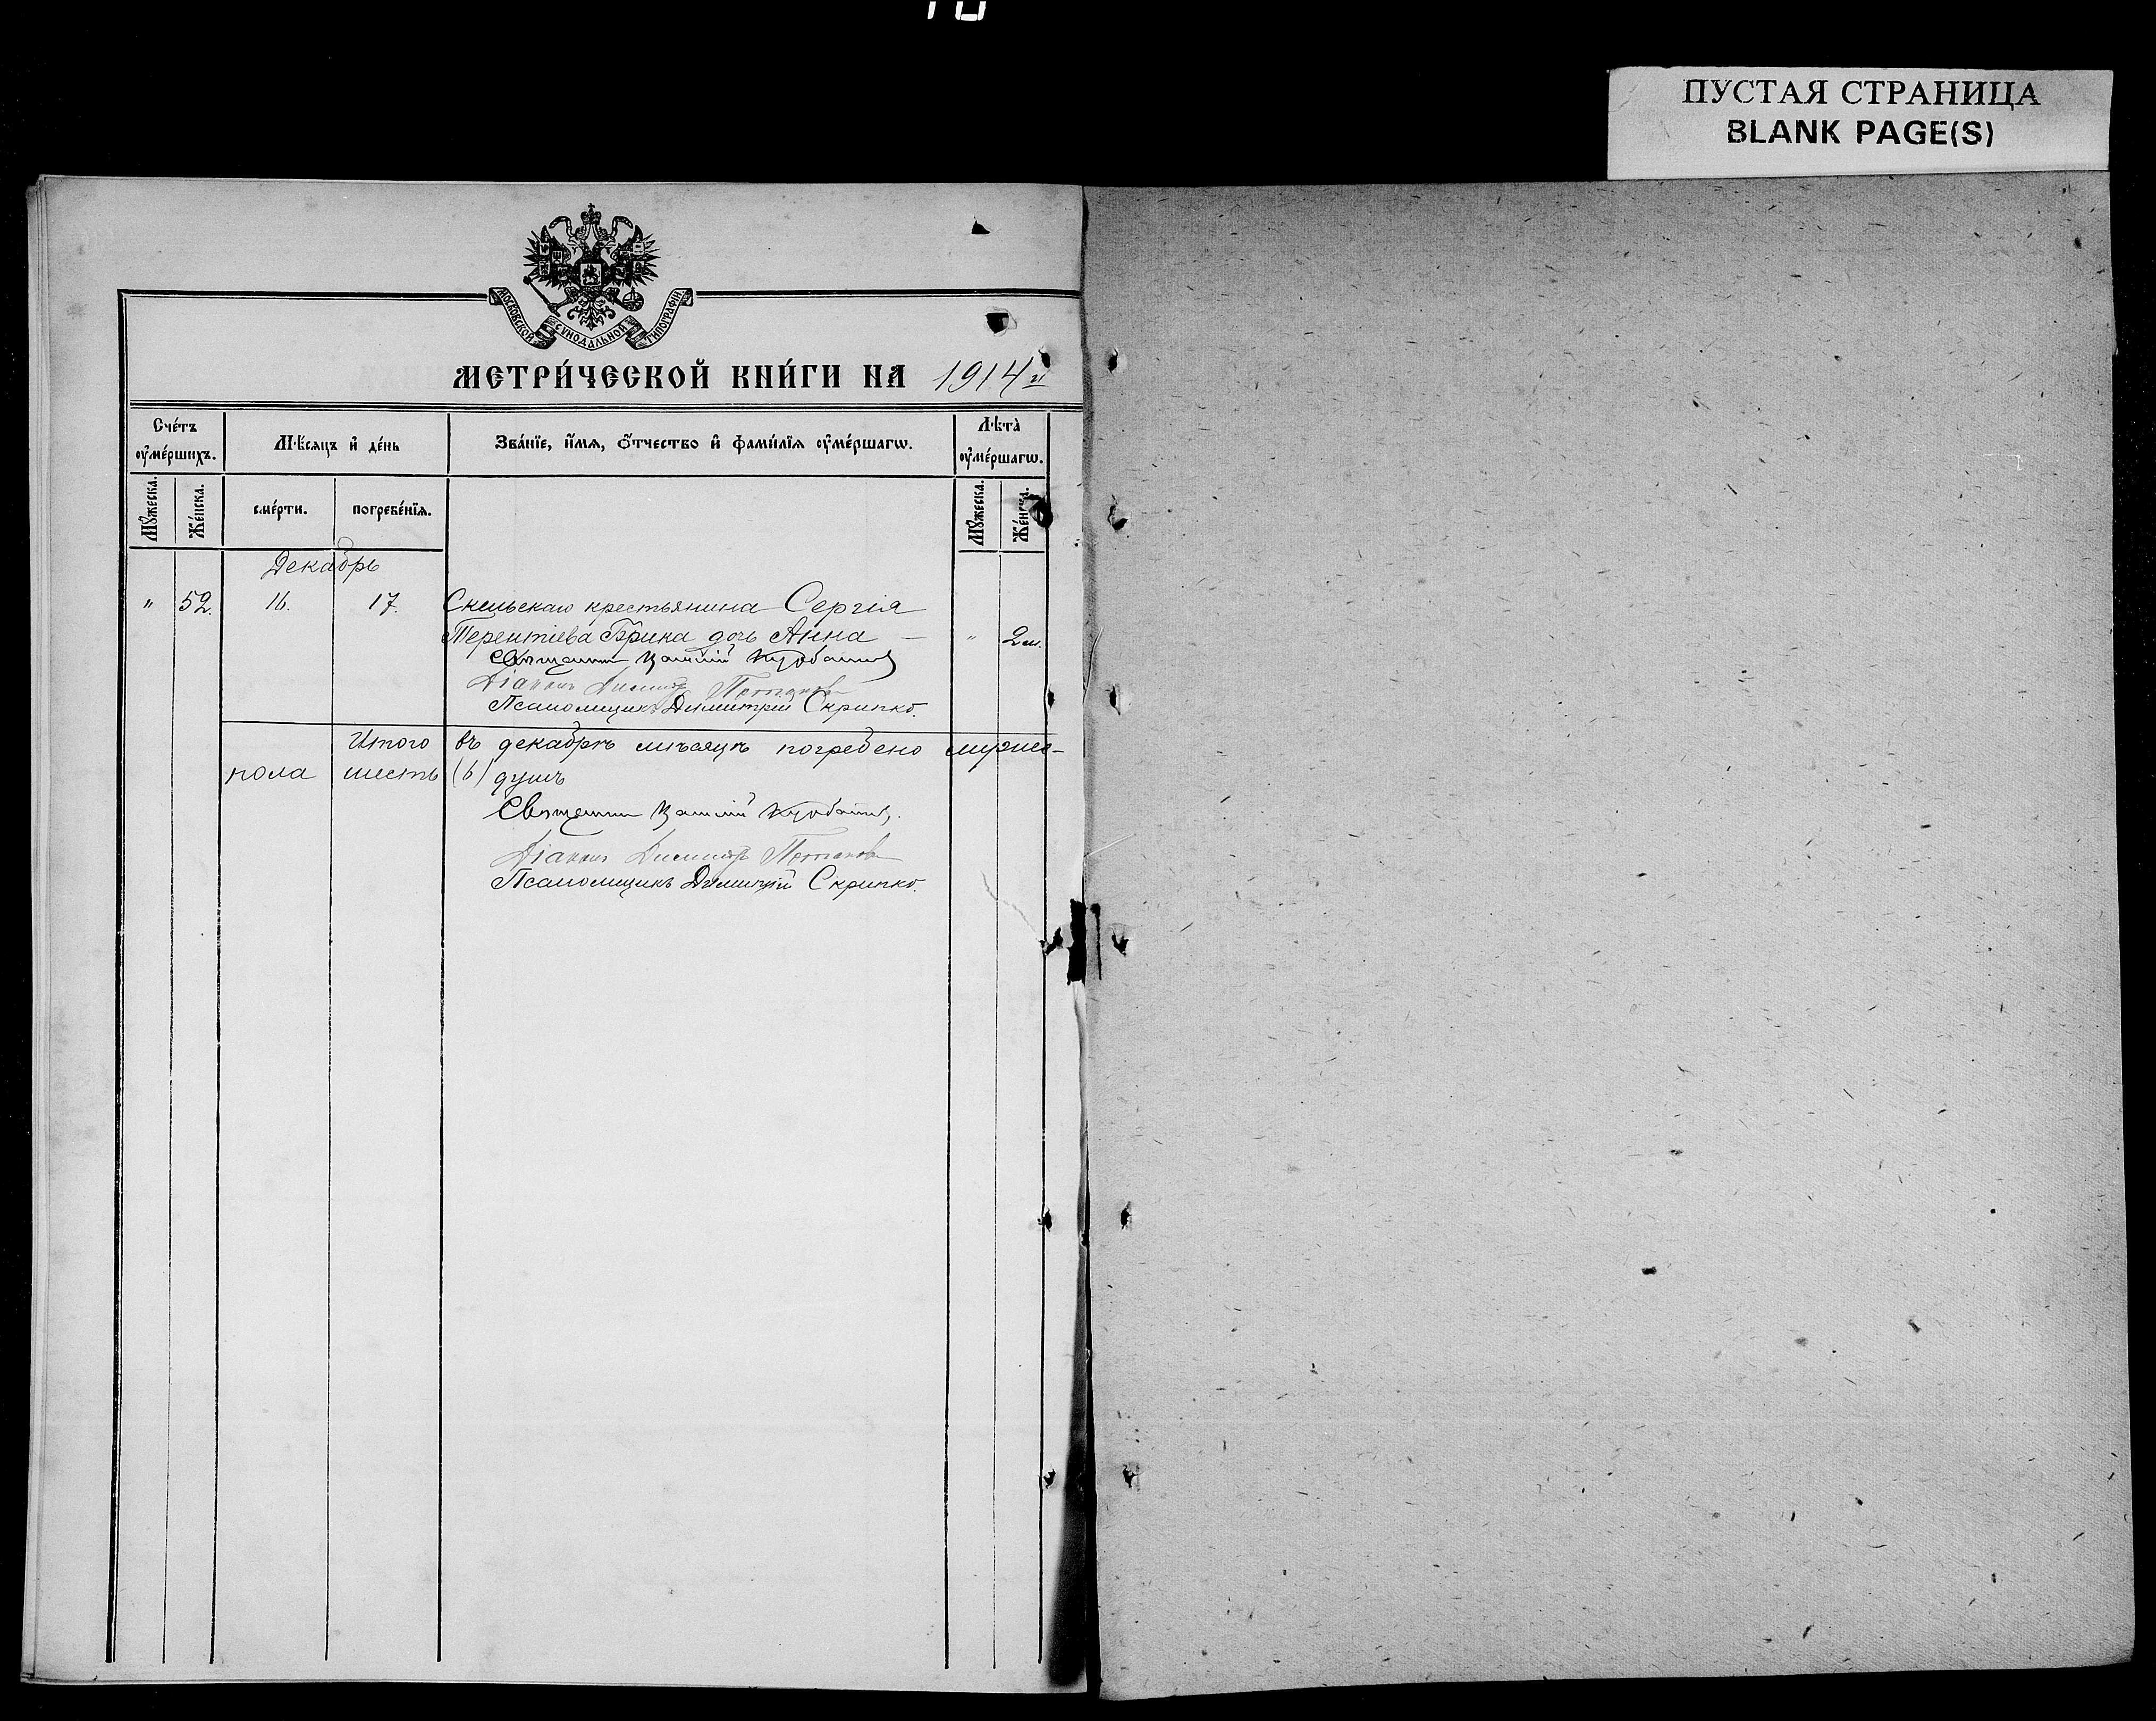 ПУСТАЯ СТРАНИЦА
BLANK PAGE(S)
МОСКОВСКОЙ СѴНОДАЛЬНОЙ ТИПОГРАФІИ
МЕТРИ́ЧЕСКОЙ КНИ́ГИ НА 1914 г
Сче́тъ ᲂу҆ме́ршихъ.
Мѣ́сяцъ и҆ де́нь
Зва́нїе, и҆́мѧ, ѻ҆́тчество и҆ фами́лїѧ ᲂу҆ме́ршагѡ.
Лѣ̀та ᲂу҆ме́ршагѡ.
Мꙋ́жеска.
Же́нска.
сме́рти.
погребе́нїѧ.
Мꙋ́жеска.
Же́нска.
Декабрь
" 52. 16. 17. Скельскаго крестьянина Сергія
Терентіева дочь Анна — " 2 м.
Священник
Діаконъ Димитр
Псаломщикъ Димитрій Скрипко.
Итого въ декабрѣ мѣсяцѣ погребено мужес-
пола шесть (6) душъ
Священник
Діаконъ Димитр
Псаломщикъ Димитрій Скрипко.